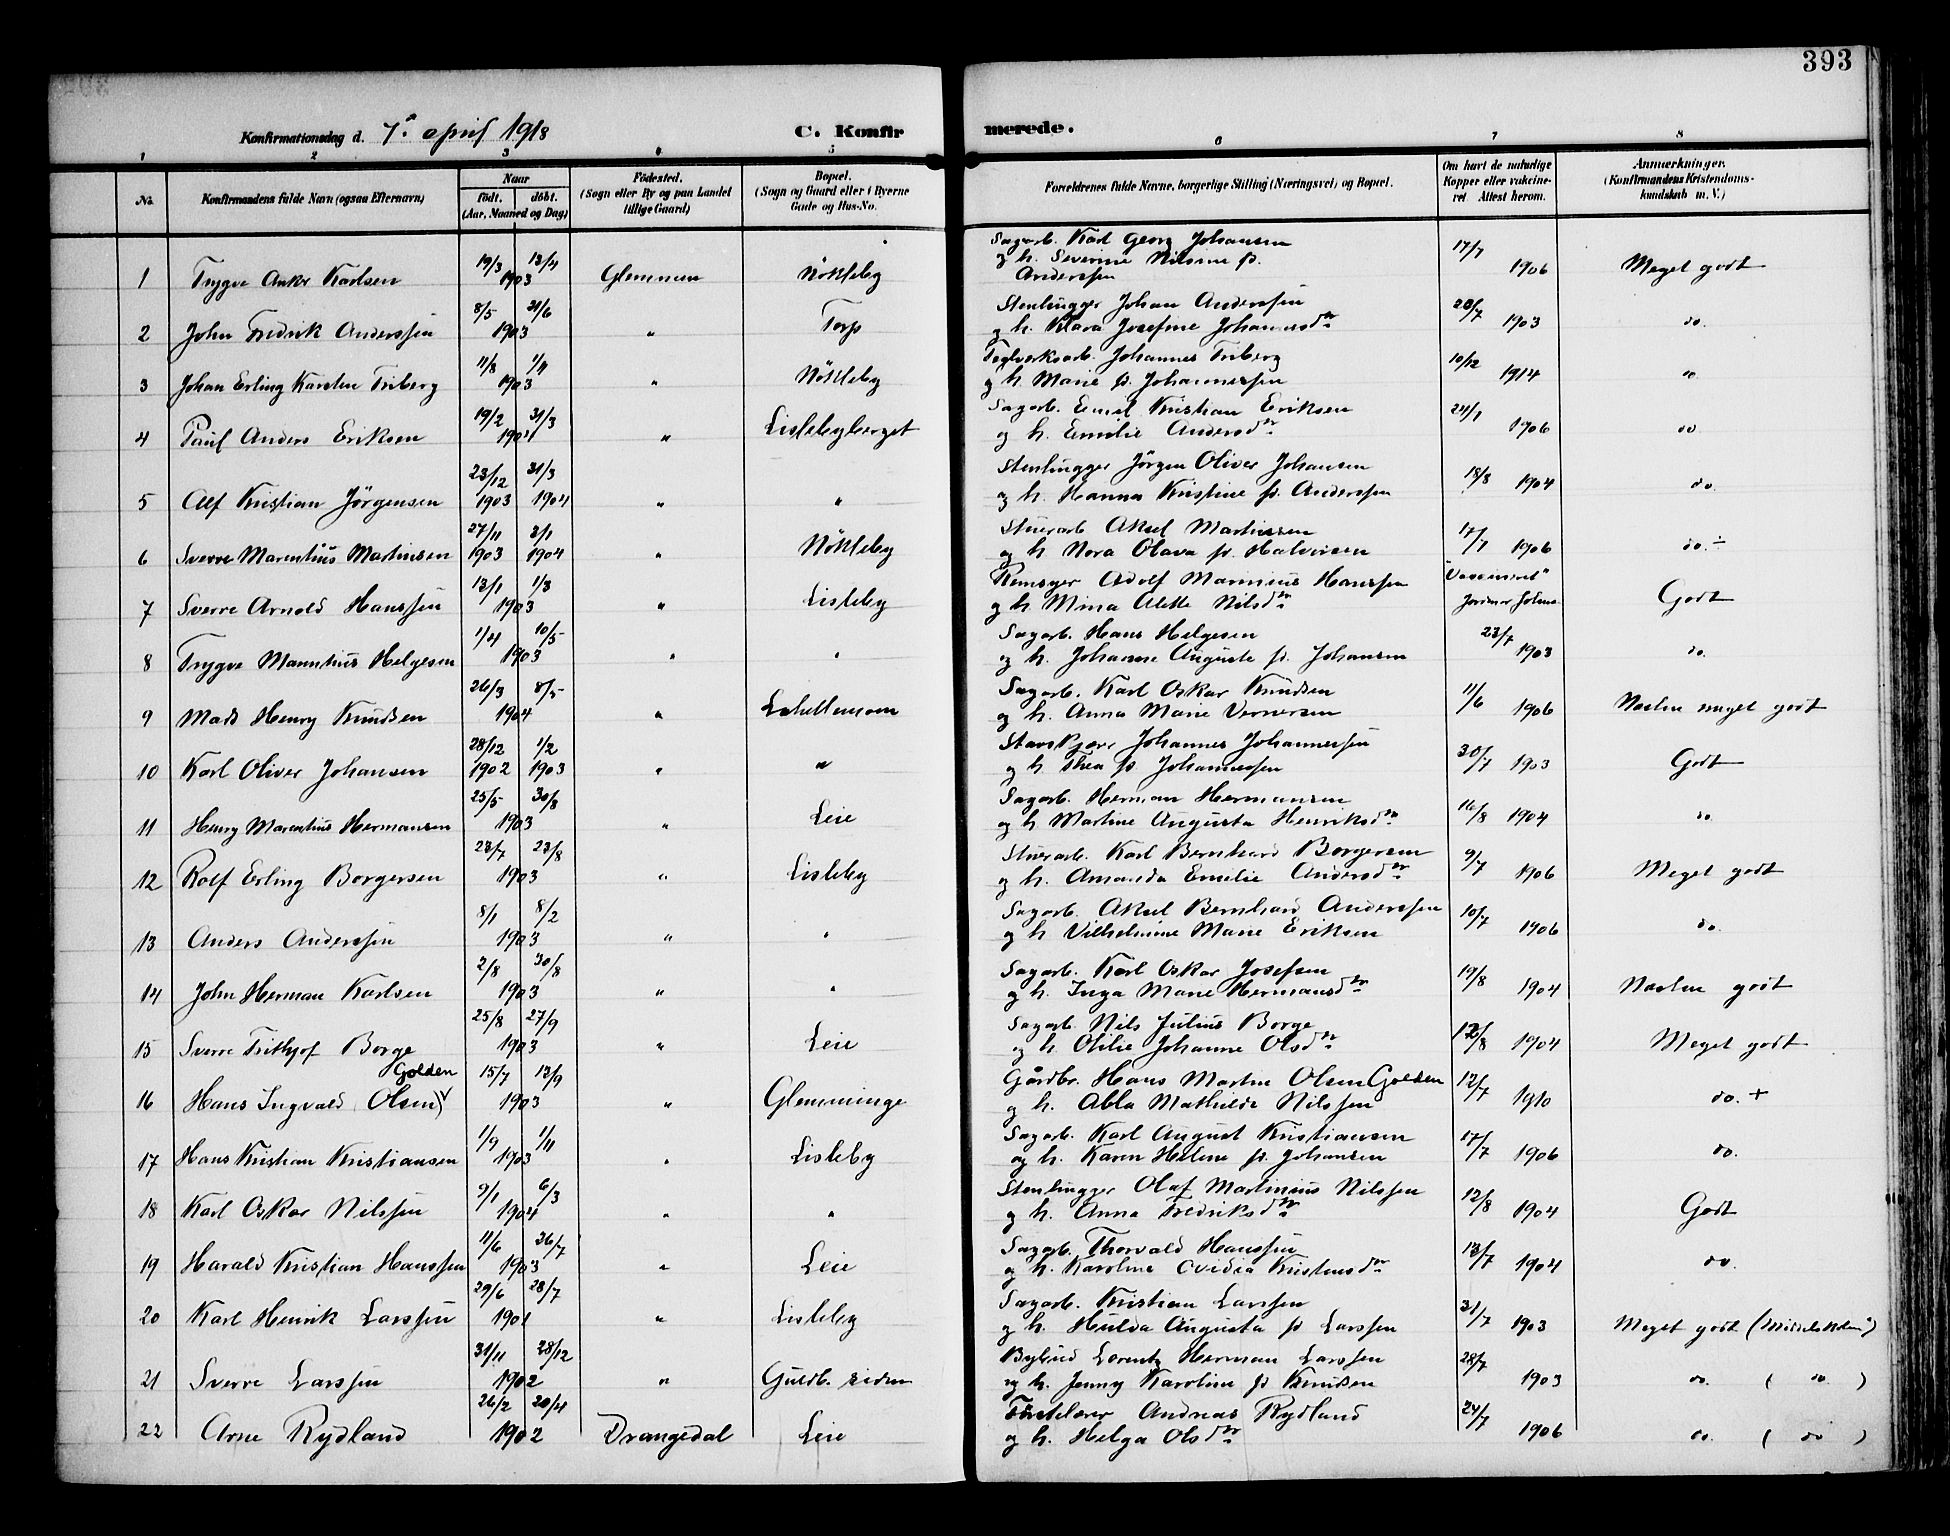 393
Konfirmationsdag d. 7de april 1918
C. Konfirmerede.
1 2 3 4 5 6 7 8
No.
Konfirmandens fulde Navn (ogsaa Efternavn)
Naar
født. døbt.
(Aar, Maaned og Dag)
Fødested.
(Sogn eller By og paa Landet
tillige Gaard)
Bopæl.
(Sogn og Gaard eller i Byerne
Gade og Hus-No.
Forældrenes fulde Navne, borgerlige Stilling (Næringsvei) og Bopæl.
Om havt de naturlige
Kopper eller vakcine-
ret Attest herom.
Anmærkninger.
(Konfirmandens Kristendoms-
kundskab m. V.)
1 Trygve Anker Karlsen 19/3 13/4 1903 Glemmen Nökleby
Sagarb. Karl Georg Johansen
og h. Severine Nilsine f.
Anderssen
17/7 1906 Meget godt
2 John Fredrik Anderssen 8/5 21/6 1903 " Torp
Stenhugger Johan Anderssen
og h. Klara Josefine Johannesdtr
20/7 1903 do.
3 Johan Erling Karsten Friberg 11/8 1/4 1903 " Nökleby
Teglverksarb. Johannes Friberg
og h. Marie f. Johannessen
10/12 1914 do
4 Paul Anders Eriksen 19/2 31/3 1901 " Lislebyberget
Sagarb. Emil Kristian Eriksen
og h. Emilie Andersdtr
24/1 1906 do
5 Alf Kristian Jörgensen 23/12 1903 31/3 1904 " "
Stenhugger Jörgen Oliver Johansen
og h. Hanna Kristine f. Anderssen
18/8 1904 do.
6 Sverre Marentius Martinsen 27/11 1903 3/1 1904 " Nökleby
Stuerarb Aksel Martinsen
og h Nora Olava f. Halvorsen
17/7 1906 do. ÷
7 Sverre Arnold Hanssen 13/1 1/3 1903 " Lisleby
Remsyer Adolf Marinius Hanssen
og h Mina Alette Nilsdtr
"Vaccineret" Godt
8 Trygve Marinius Helgesen 1/4 10/5 1903 " "
Sagarb. Hans Helgesen
og h. Johanne Auguste f. Johansen
23/7 1903 do.
9 Mads Henry Knudsen 26/3 8/5 1904 "
Sagarb. Karl Oskar Knudsen
og h. Anna Marie Vernersen
11/6 1906 Næsten meget godt
10 Karl Oliver Johansen 28/12 1902 1/2 1903 " "
Johannes Johannessen
og h Thea f. Johannessen
30/7 1903 Godt
11 Henry Marentius Hermansen 25/5 30/8 1903 " Leie
Sagarb. Herman Hermansen
og h Martine Augusta Henriksdtr
16/8 1904 do
12 Rolf Erling Borgersen 23/7 23/8 1903 " Lisleby
Stuerarb. Karl Bernhard Borgersen
og h. Amanda Emelie Andersdtr
9/7 1906 Meget godt
13 Anders Anderssen 8/1 8/2 1903 " "
Sagarb. Aksel Bernhard Anderssen
og h Vilhelmine Marie Eriksen
10/7 1906 do.
14 John Herman Karlsen 2/8 30/8 1903 " "
Sagarb. Karl Oskar Josefsen
og h. Inga Marie Hermansdtr
19/8 1904 Næsten godt
15 Sverre Frithjof Borge 25/8 27/9 1903 " Leie
Sagarb. Nils Julius Borge
og h Otilie Johanne Olsdtr
1904 Meget godt
Golden
16 Hans Ingvald Olsen 15/7 13/9 1903 " Glemminge
Gårdbr. Hans Martin Olsen Golden
og h. Abla Mathilde Nilssen
12/7 1910 do. +
17 Hans Kristian Kristiansen 1/9 1/11 1903 " Lisleby
Sagarb. Karl August Kristiansen
og h. Karen Helene f. Johansen
17/7 1906 do.
18 Karl Oskar Nilssen 9/1 6/3 1904 " "
Stenhugger Olaf Martinius Nilssen
og h. Anna Fredriksdtr
12/8 1904 Godt
19 Harald Kristian Hanssen 11/6 26/7 1903 " Leie
Sagarb. Thorvald Hanssen
og h. Karoline Ovidia Kristensdtr
13/7 1904 do.
20 Karl Henrik Larssen 29/6 28/7 1901 " Lisleby
Sagarb. Kristian Larssen
og h. Hulda Augusta f. Larssen
31/7 1903 Meget godt (Middelskolen)
21 Sverre Larssen 31/11 28/12 1902 " Guldb. siden
Bybud Lorentz Herman Larssen
og h. Jenny Karoline f. Knudsen
28/7 1903 do. ( do. )
22 Arne Rydland 26/2 20/4 1902 Drangedal Leie
Andreas Rydland
og h. Helga Olsdtr
24/7 1906 do. ( do )